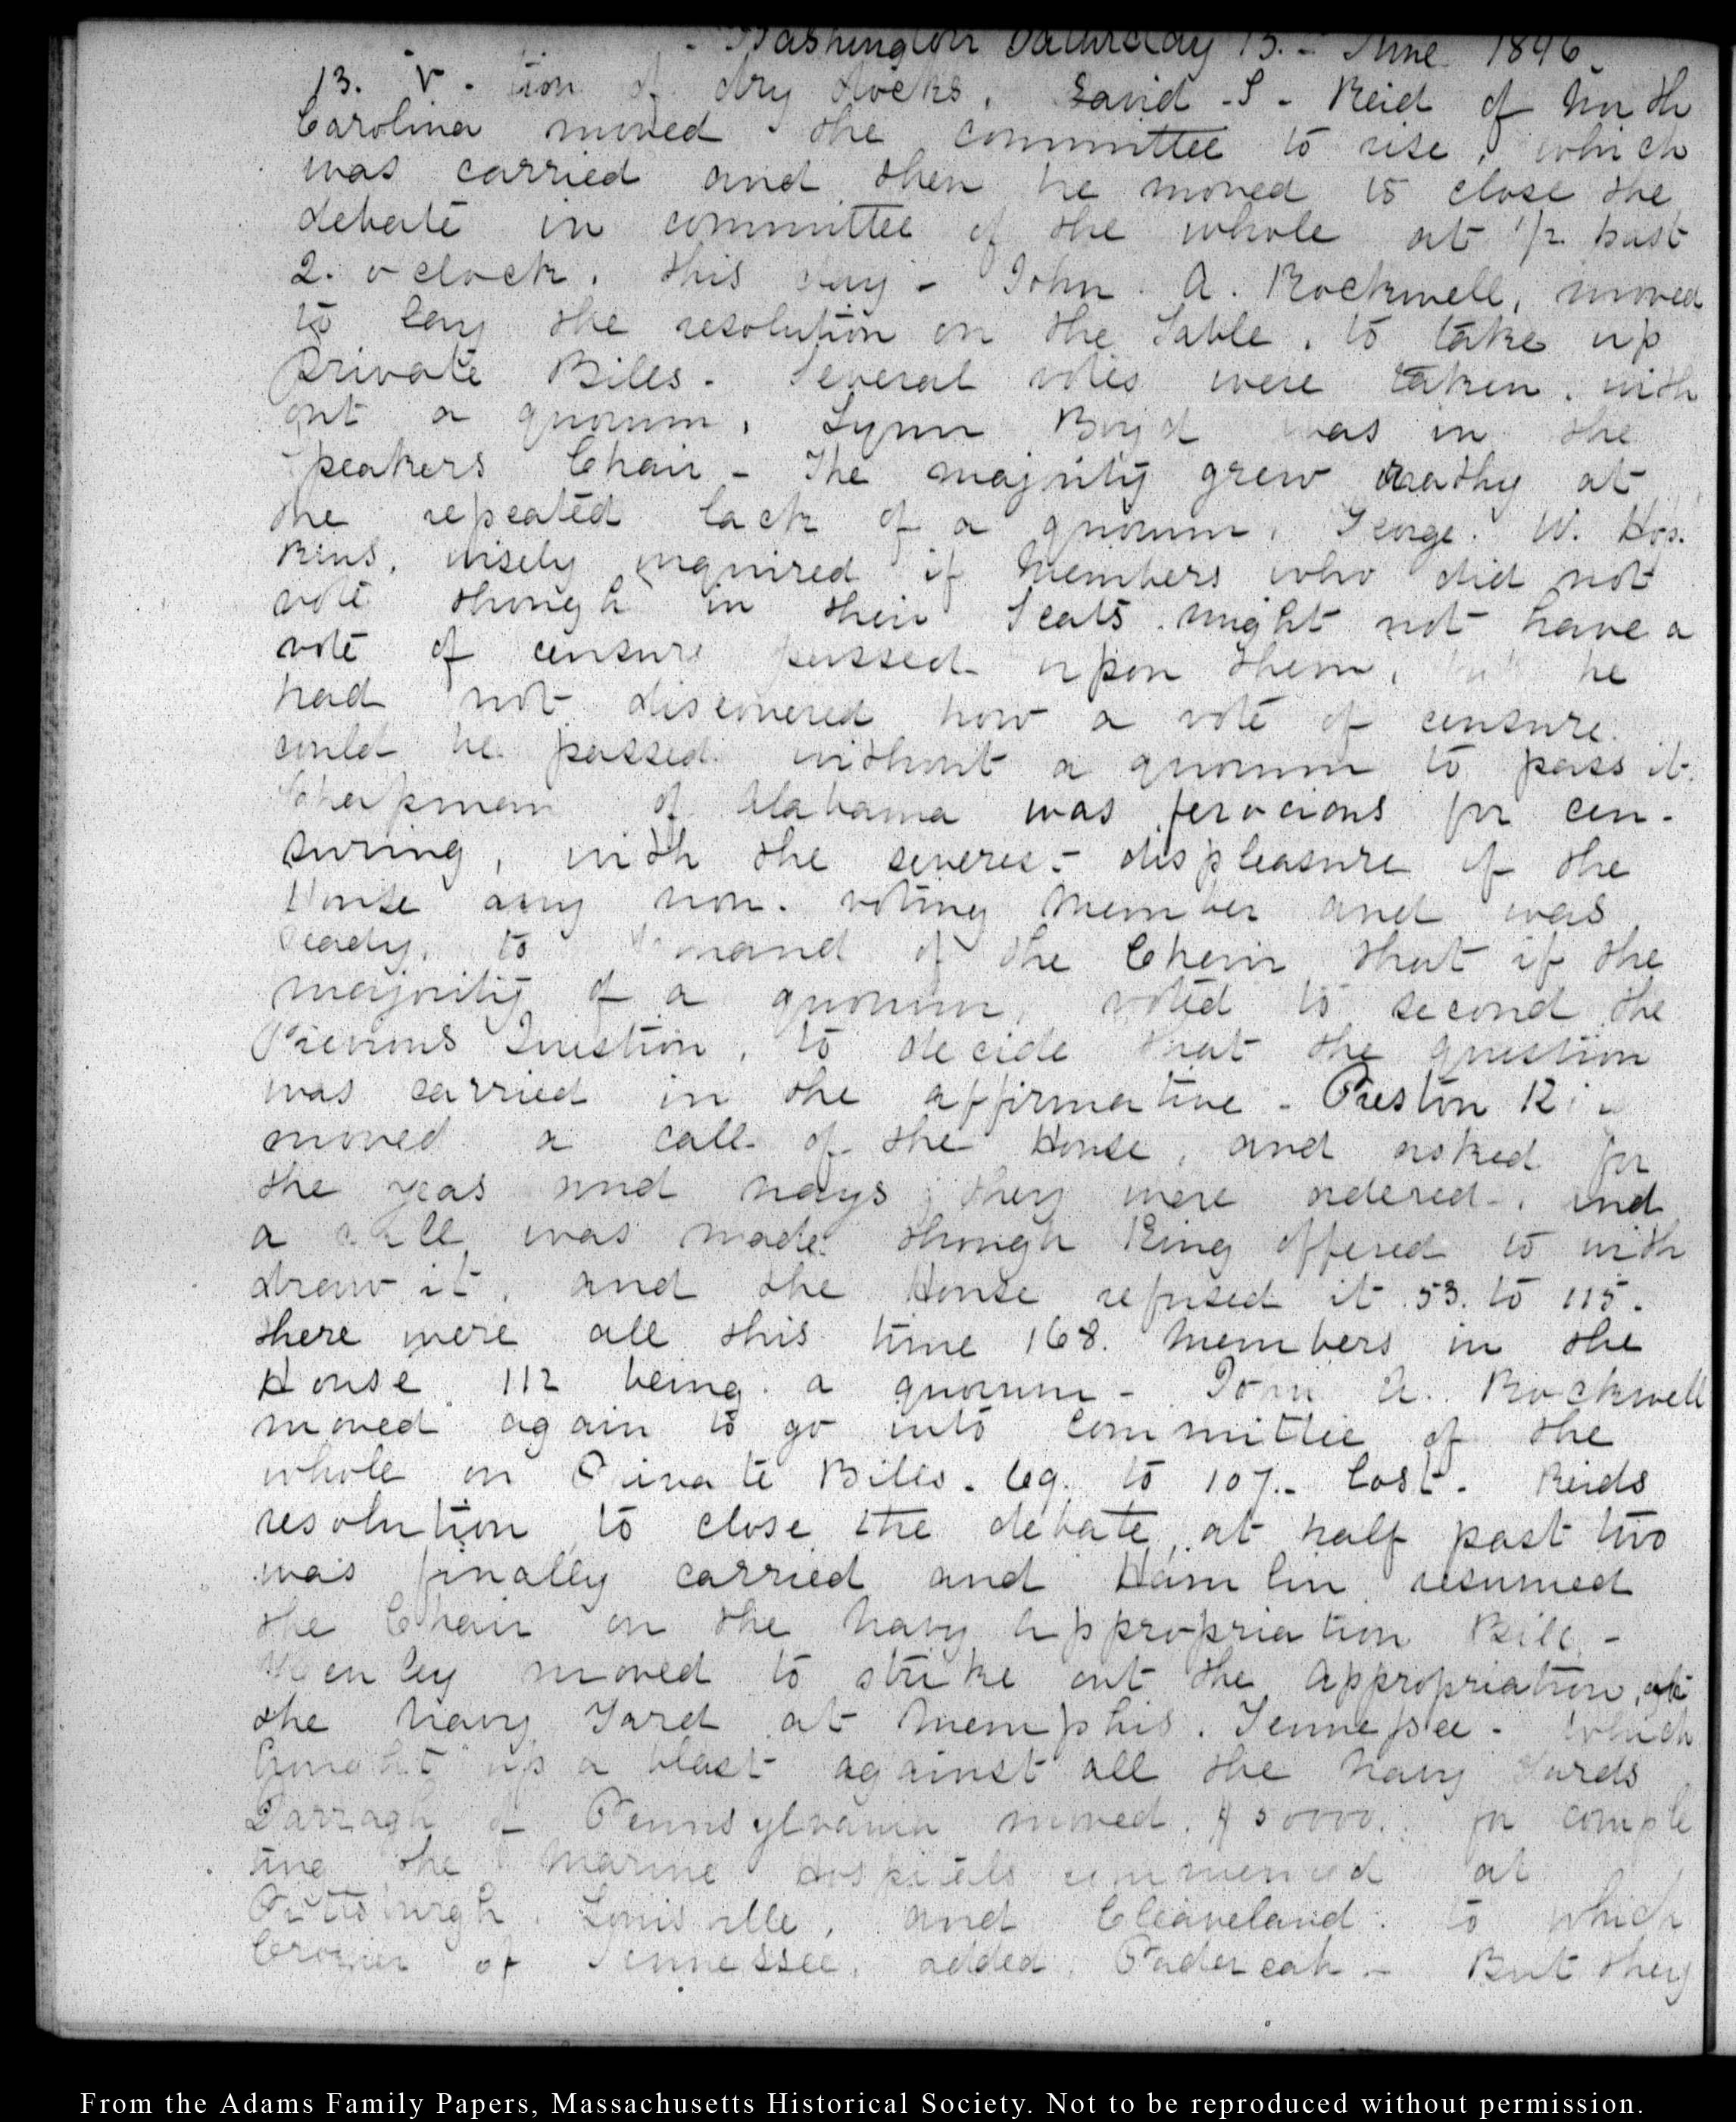 Washington Saturday 13. June 1846.
13. V. tion of dry docks. David S. Reid of North
Carolina moved the committee to rise, which
was carried and then he moved to close the
debate in committee of the whole at 1/2 past
2. o clock. this day - John. A. Rockwell, moved
to lay the resolution on the Table, to take up
Private Bills. Several votes were taken, with
out a quorum. Lynn Boyd was in the
Speakers Chair - The majority grew wrathy at
the repeated lack of a quorum. George. W. Hop.
kins, wisely inquired if Members who did not
vote though in their Seats might not have a
vote of censure passed upon them, but he
had not discovered how a vote of censure.
could be passed without a quorum to pass it.
Chapman of Alabama was ferocious for cen-
suring, with the severest displeasure of the
House any non. voting Member and was
ready, to demand of the Chair that if the
majority of a quorum, voted to second the
Previous Question, to decide that the question
was carried in the affirmative - Preston King
moved a call of the House, and asked for
the yeas and nays; they were ordered, and
a call was made though King offered to with
draw it, and the House refused it 53. to 115.
there were all this time 168. Members in the
House 112 being a quorum - John A. Rockwell
moved again to go into Committee of the
whole on Private Bills. 69. to 107. - lost. Reids
resolution to close the debate, at half past two
was finally carried and Hamlin resumed
the Chair on the Navy Appropriation Bill -
Henley moved to strike out the Appropriation, at
the Navy Yard at Memphis. Tennessee - which
brought up a blast against all the Navy Yards
Darragh of Pennsylvania moved. $50000. for comple
ting the Marine Hospitals commenced at
Pittsburgh. Louisville, and Cleaveland. to which
Crozier of Tennessee. added. Paducah - But they
From the Adams Family Papers, Massachusetts Historical Society. Not to be reproduced without permission.